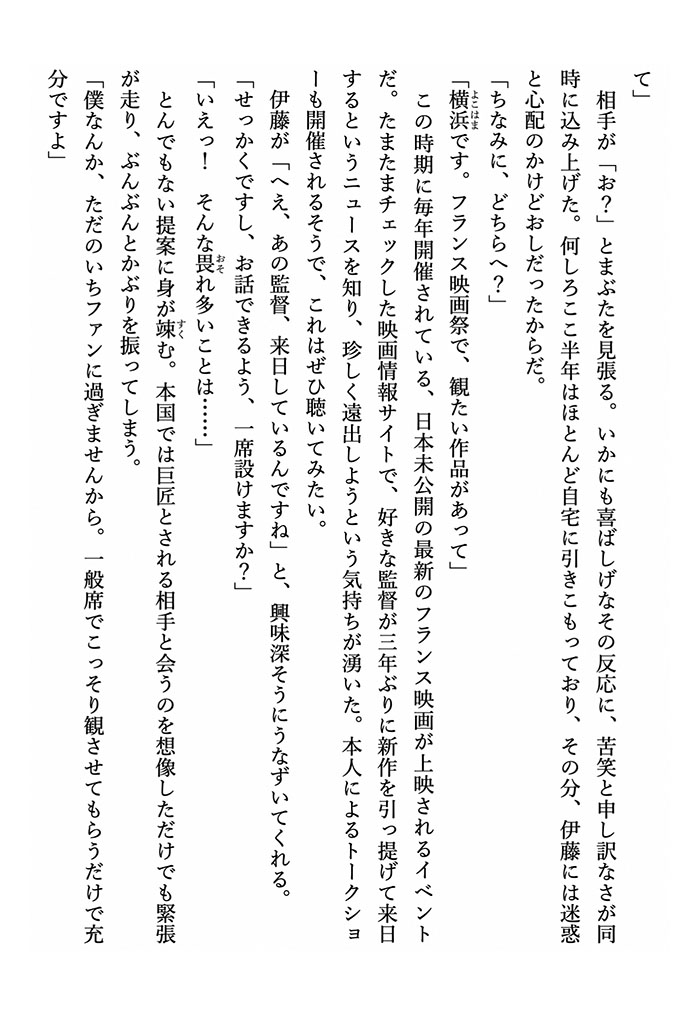 て」
　相手が「お？」とまぶたを見張る。いかにも喜ばしげなその反応に、苦笑と申し訳なさが同
時に込み上げた。何しろここ半年はほとんど自宅に引きこもっており、その分、伊藤には迷惑
と心配のかけどおしだったからだ。
「ちなみに、どちらへ？」
「横浜です。フランス映画祭で、観たい作品があって」
　この時期に毎年開催されている、日本未公開の最新のフランス映画が上映されるイベント
だ。たまたまチェックした映画情報サイトで、好きな監督が三年ぶりに新作を引っ提げて来日
するというニュースを知り、珍しく遠出しようという気持ちが湧いた。本人によるトークショ
ーも開催されるそうで、これはぜひ聴いてみたい。
　伊藤が「へえ、あの監督、来日しているんですね」と、興味深そうにうなずいてくれる。
「せっかくですし、お話できるよう、一席設けますか？」
「いえっ！　そんな畏れ多いことは……」
　とんでもない提案に身が竦む。本国では巨匠とされる相手と会うのを想像しただけでも緊張
が走り、ぶんぶんとかぶりを振ってしまう。
「僕なんか、ただのいちファンに過ぎませんから。一般席でこっそり観させてもらうだけで充
分ですよ」